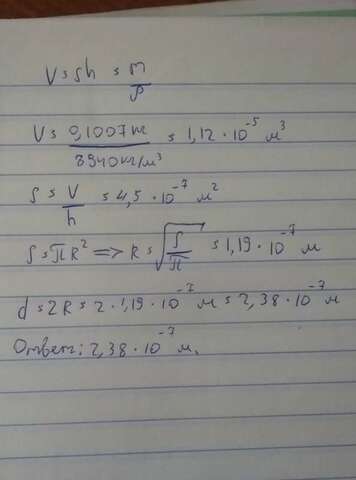 V = Sh = m/ρ
V = 0,1007 кг / 8940 кг/м³ = 1,12 · 10⁻⁵ м³
S = V/h = 4,5 · 10⁻⁷ м²
S = πR² => R = √(S/π) = 1,19 · 10⁻⁷ м
d = 2R = 2 · 1,19 · 10⁻⁷ м = 2,38 · 10⁻⁷ м
Ответ: 2,38 · 10⁻⁷ м.